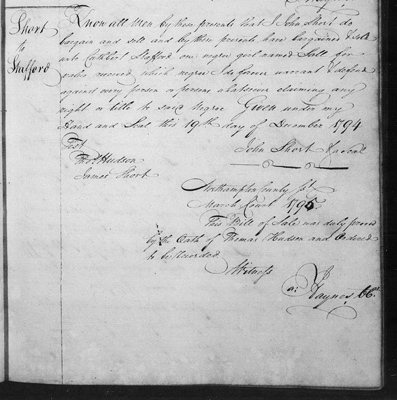 Short
to
Stafford
Know all Men by these presents that I John Short do
bargain and sell and by these presents have bargained & sold
unto Cuthbert Stafford one negro girl named Sall for
value received which negro I do forever warrant & defend
against every person or persons whatsoever claiming any
right or title to said Negro Given under my
Hand and Seal this 19th day of December 1794
Test
John Short
Thos Hudson
James Short
Northampton County Sct
March Court 1795
This Bill of Sale was duly proved
by the Oath of Thomas Hudson and Ordered
to be recorded
Witness
Haynes CC